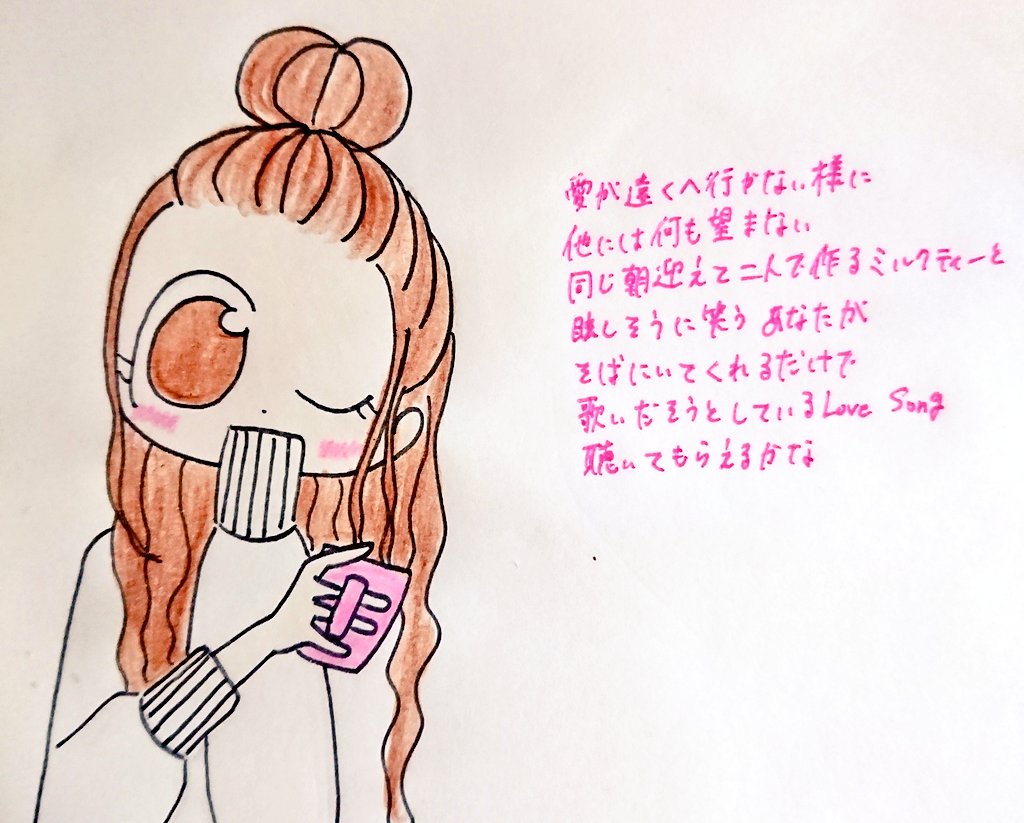 愛が遠くへ行かない様に
他には何も望まない
同じ朝迎えて二人で作るミルクティーと
眩しそうに笑う あなたが
そばにいてくれるだけで
歌いだそうとしているLove Song
聴いてもらえるかな